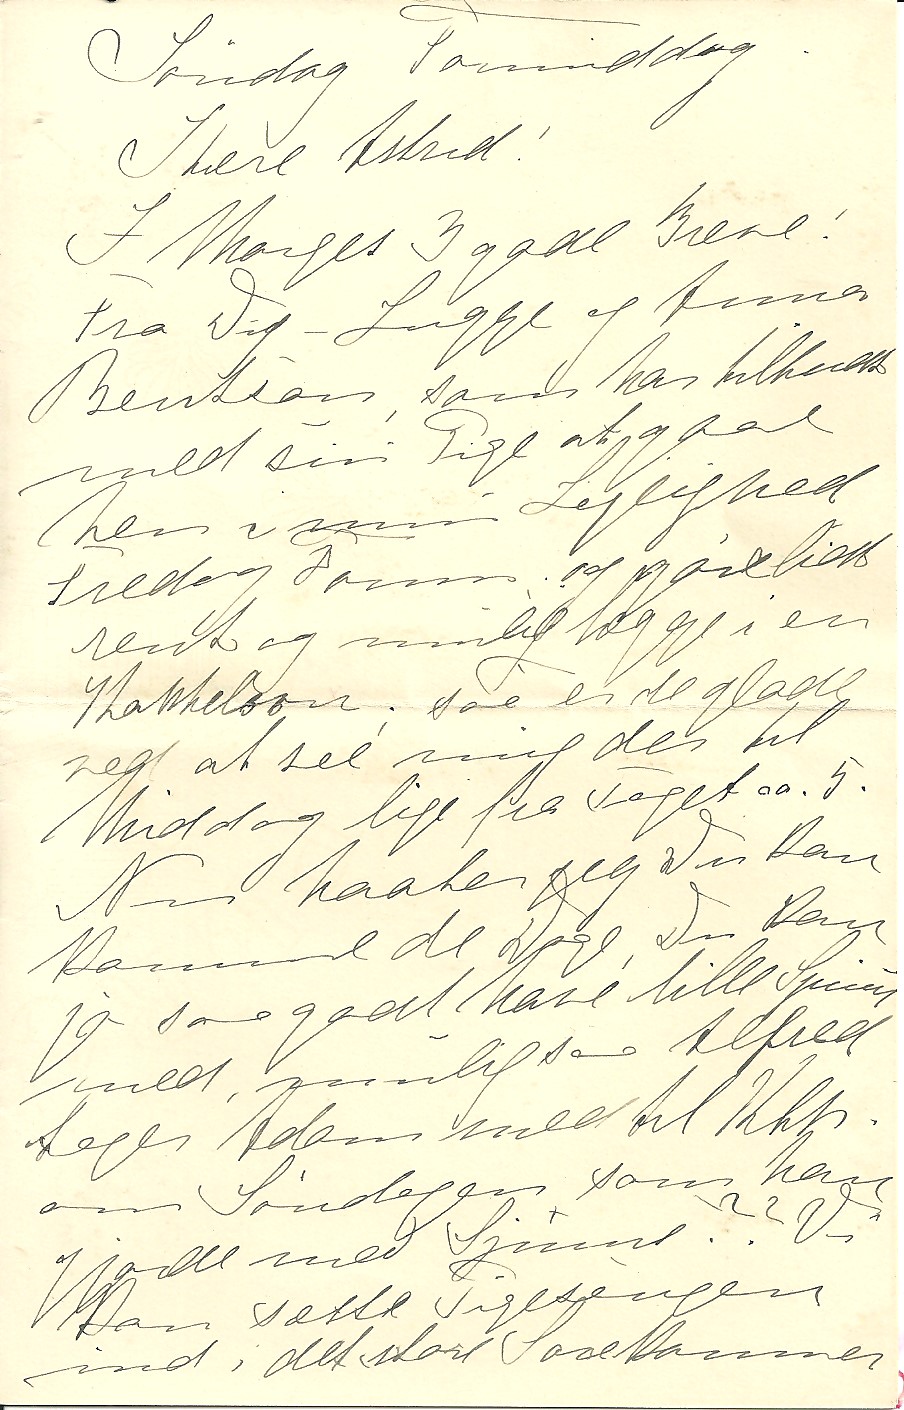 Søndag Formiddag.
Kære Astrid!
I Morges 3 gode Breve!
Fra Dig – Lugge og Anna
Bentson, som har tilbudt
med sin Pige at gaae
hen i min Lejlighed
Fredag Form. og gøre lidt
rent og mulig lægge i en
Kakkelovn, saa er de glade
ved at see mig der til
Middag lige fra Toget ca. 5.
Nu haaber jeg Du kan
komme de Dage, Du kan
jo saa godt have lille
med, mulig saa Alfred
tager Adam med til Kbh.
om Søndagen som han
gjorde med ?? Vi
kan sætte Pigesengen
ind i det store Sovekammer